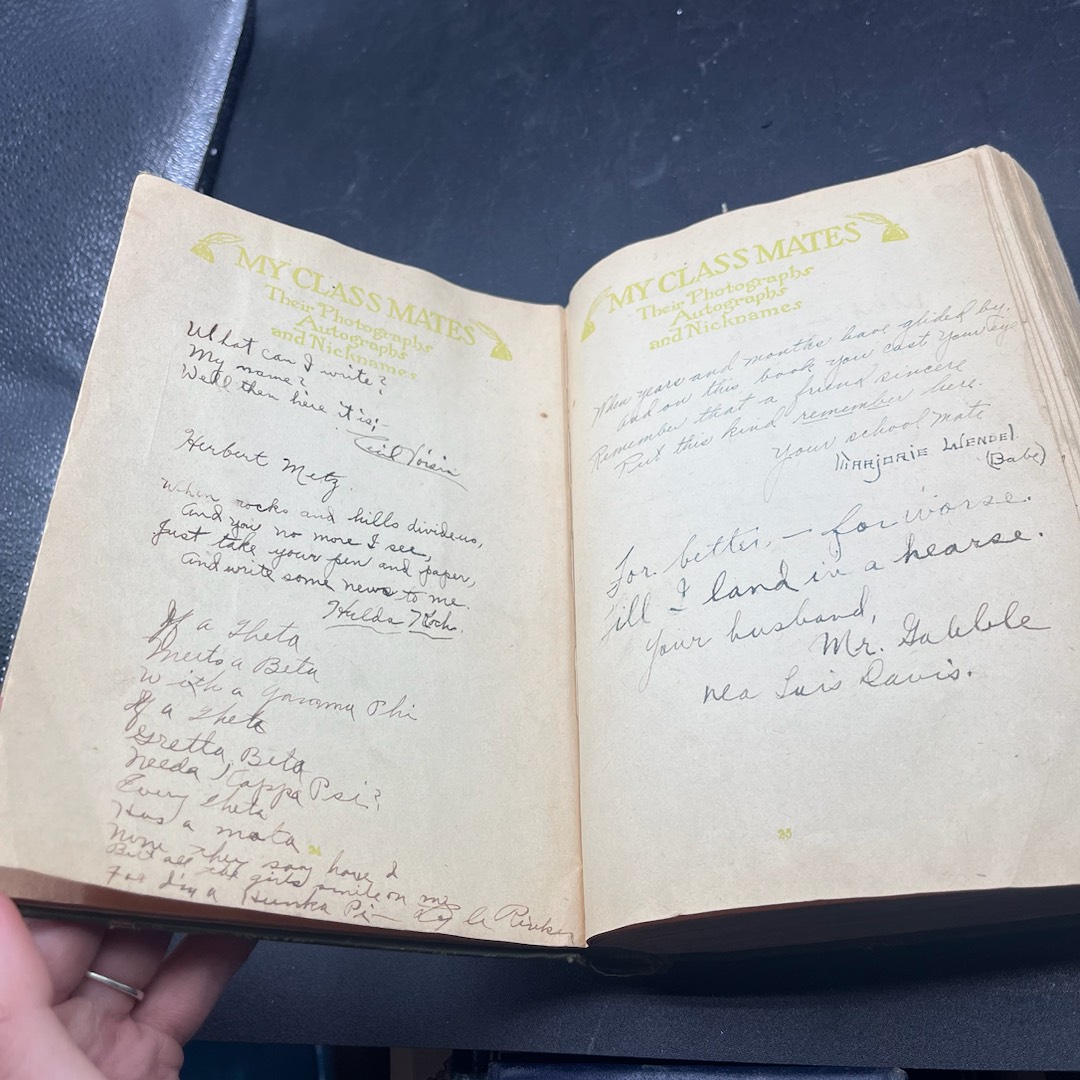 MY CLASS MATES
Their Photographs
Autographs
and Nicknames
What can I write?
My name?
Well then here it is;-
Herbert Metz.
When rocks and hills divide us,
And you no more I see,
Just take your pen and paper,
And write some news to me.
Hilda Koch.
If a Theta
Meets a Beta
With a Gamma Phi
If a Theta
Gretta Beta
Needa Kappa Psi?
Every theta
Has a mata
24
None they say have I
But all the girls smile on me
For I'm a Hunka Pi—
MY CLASS MATES
Their Photographs
Autographs
and Nicknames
When years and months have glided by.
and on this book you cast your eye
Remember that a friend sincere
Put this kind remember here.
Your school mate
Marjorie Wendel.
(Babe)
For better, — for worse.
Till I land in a hearse.
Your husband,
Mr. Gabble
nea Luis Davis.
25